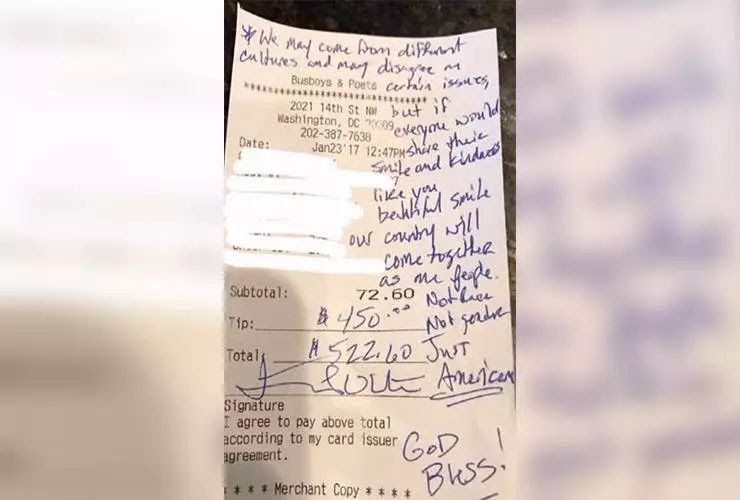 * We may come from different
cultures and may disagree on
certain issues,
Busboys & Poets
********************************
2021 14th St NW
Washington, DC 20009
202-387-7638
Date: Jan23'17 12:47PM
but if
everyone would
share their
smile and kindness
like you
beautiful smile
our country will
come together
as one people.
Not Race
Not gender
Just
American
7
Subtotal: 72.60
Tip: $ 450.00
Total: $ 522.60
Signature
I agree to pay above total
according to my card issuer
agreement.
GOD
Bless!
* * * * Merchant Copy * * * *